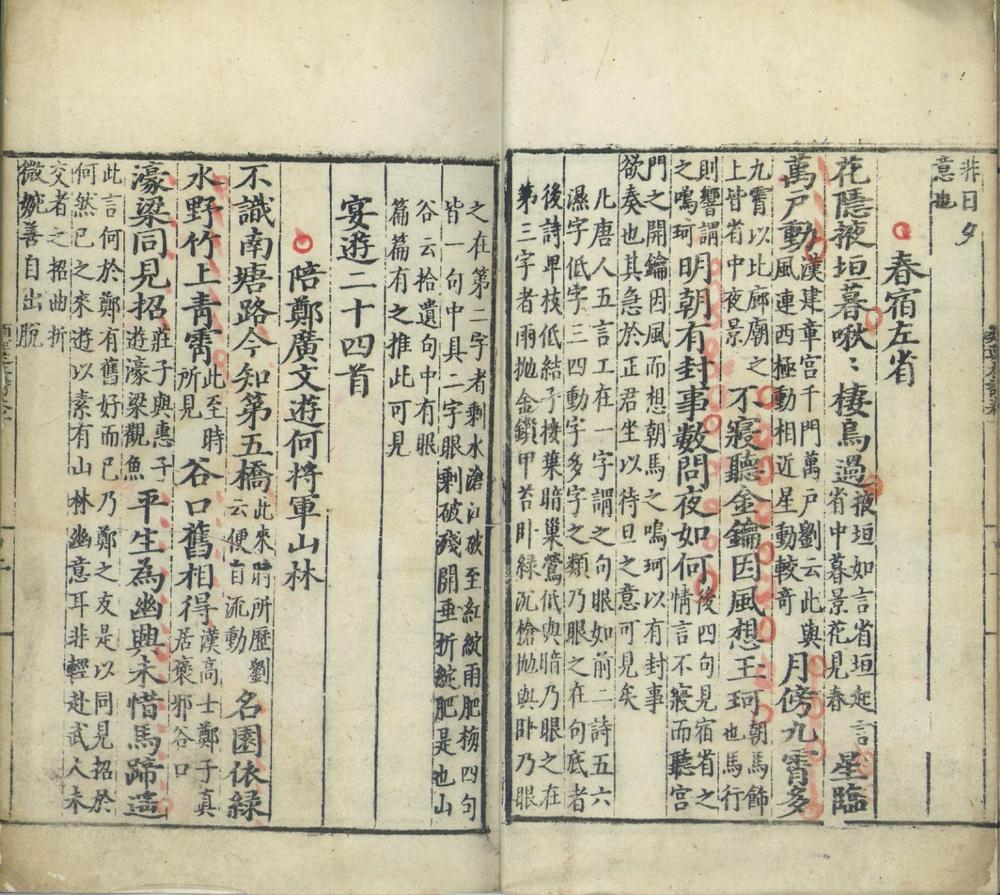 非日夕
意也
春宿左省
花隱掖垣暮啾〻棲鳥過掖垣如言省垣起言
省中暮景花見春
星臨
萬戶動漢建章宮千門萬戶劉云此與
風連西極動相近星動較奇
月傍九霄多
九霄以比廊廟之
上皆省中夜景
不寢聽金鑰因風想王珂朝馬飾
也馬行
則響謂
之鳴珂
明朝有封事數問夜如何後四句見宿省之
情言不寢而聽宮
門之開鑰因風而想朝馬之鳴珂以有封事
欲奏也其急於正君坐以待旦之意可見矣
凡唐人五言工在一字謂之句眼如前二詩五六
濕字低字三四動字多字之類乃眼之在句底者
後詩畀枝低結子接葉暗巢鶯低與暗乃眼之在
第三字者雨拋金鎖甲苔卧綠沉槍拋與卧乃眼
之在第二字者剩水滄江破至紅綻雨肥梅四句
皆一句中具二字眼剩破殘開垂折綻肥是也山
谷云拾遺句中有眼
篇篇有之推此可見
宴遊二十四首
陪鄭廣文遊何將軍山林
不識南塘路今知第五橋此來時所歷劉
云便自流動
名園依綠
水野竹上青霄此至時
所見
谷口舊相得漢高士鄭子真
居褒邪谷口
濠梁同見招莊子與惠子
遊濠梁觀魚
平生為幽興未惜馬蹄遥
此言何於鄭有舊好而已乃鄭之友是以同見招於
何然已之來遊以素有山林幽意耳非輕赴武人未
交者之招曲折
微婉善自出脫